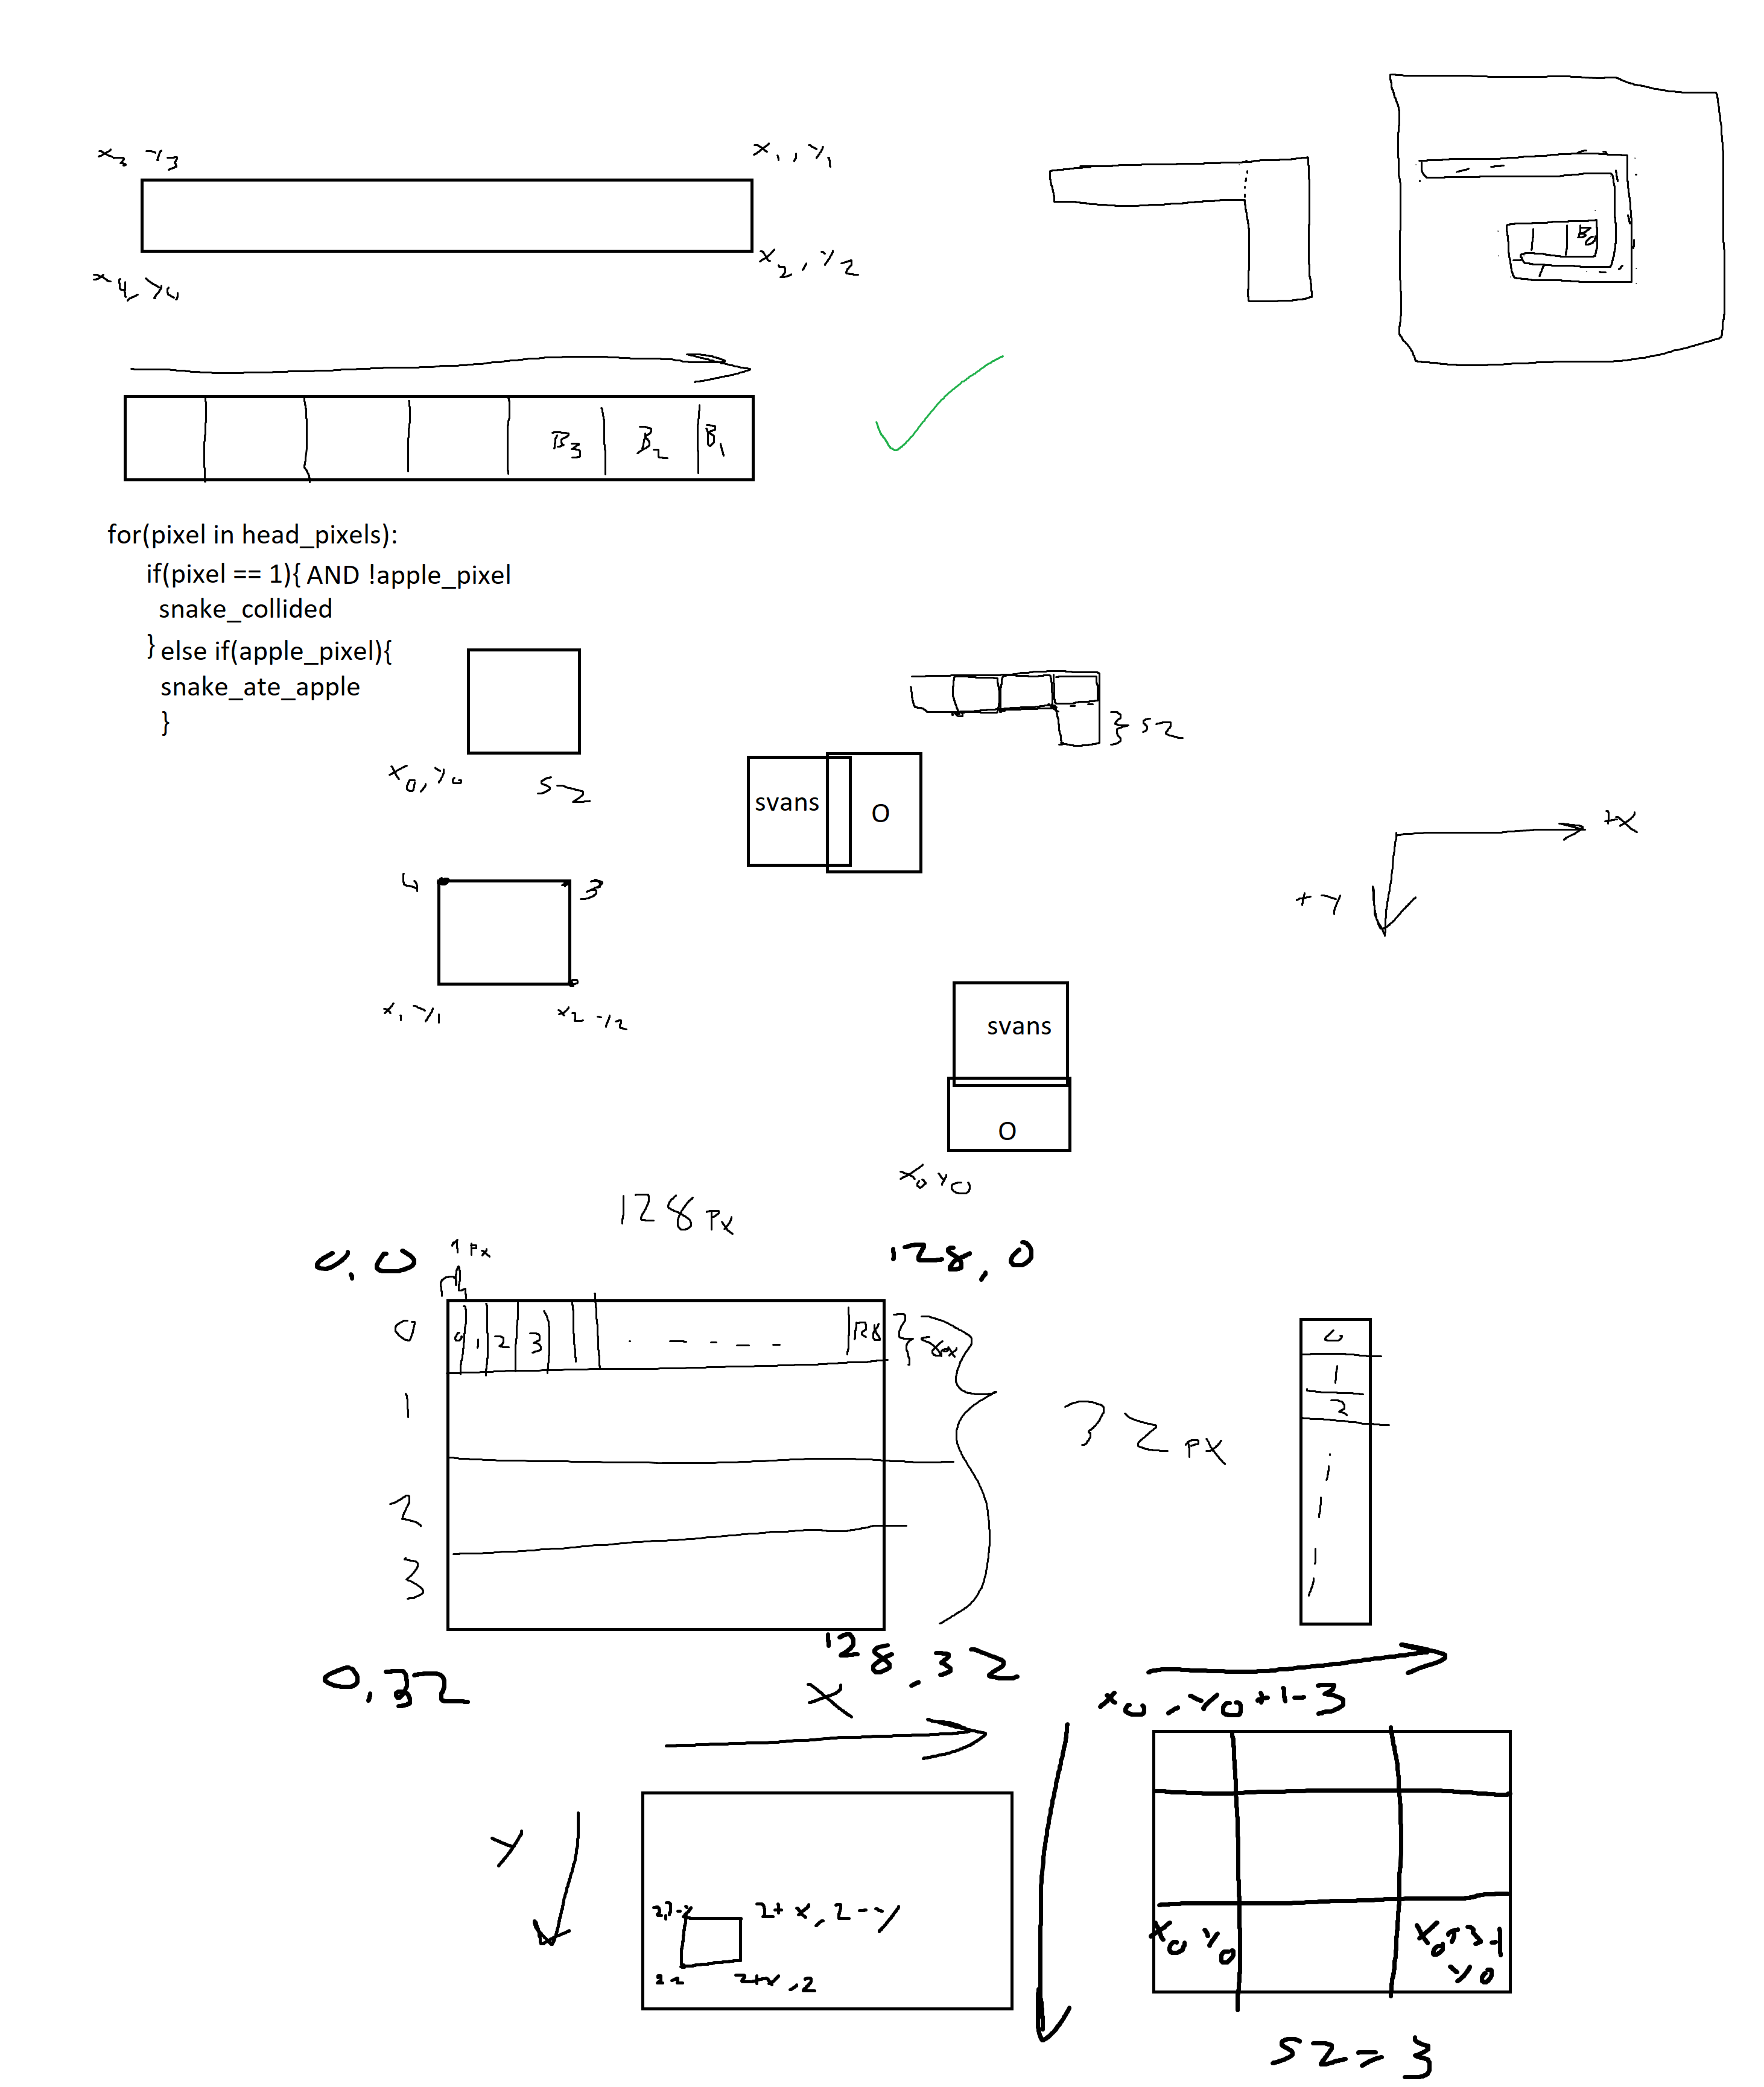 x3 y3
x1, y1
x2, y2
x4, y4
B0
B3 B2 B1
for(pixel in head_pixels):
if(pixel == 1){ AND !apple_pixel
snake_collided
} else if(apple_pixel){
snake_ate_apple
}
sz
x0, y0
sz
svans
O
+x
+y
4
3
x1 y1
x2 y2
svans
O
x0 y0
128 px
1 px
0,0
128,0
0
0 1 2 3
1
2
3
32 px
0
1
2
0,32
128,32
x
x0, y0+1-3
y
2+x, 2-y
2 2
2+x, 2
x0 y0
x0+3-1
y0
sz=3